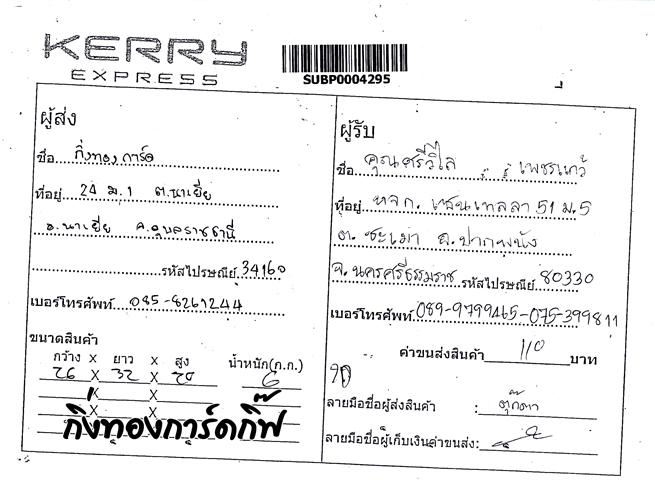 KERRY
EXPRESS
SUBP0004295
ผู้ส่ง
ชื่อ กิ่งทองการ์ด
ที่อยู่ 20 ม.1 ต.นาเยีย
อ.นาเยีย จ.อุบลราชธานี
รหัสไปรษณีย์ 34160
เบอร์โทรศัพท์ 085-8261244
ขนาดสินค้า
กว้าง x ยาว x สูง น้ำหนัก(ก.ก.)
26 X 32 X 20 6
X X
X X
กิ่งทองการ์ดกิ๊ฟ
ผู้รับ
ชื่อ คุณศรีวิไล เพชรแก้ว
ที่อยู่ หจก. 51 ม.5
ต. ชะเมา อ.ปากพนัง
จ.นครศรีธรรมราช รหัสไปรษณีย์ 80330
เบอร์โทรศัพท์ 089-9799465-075-399811
ค่าขนส่งสินค้า 110 บาท
90
ลายมือชื่อผู้ส่งสินค้า : ตุ๊กตา
ลายมือชื่อผู้เก็บเงินค่าขนส่ง: